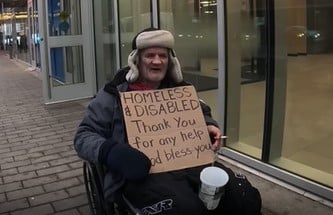 HOMELESS
& DISABLED
Thank You
for any help
God bless you